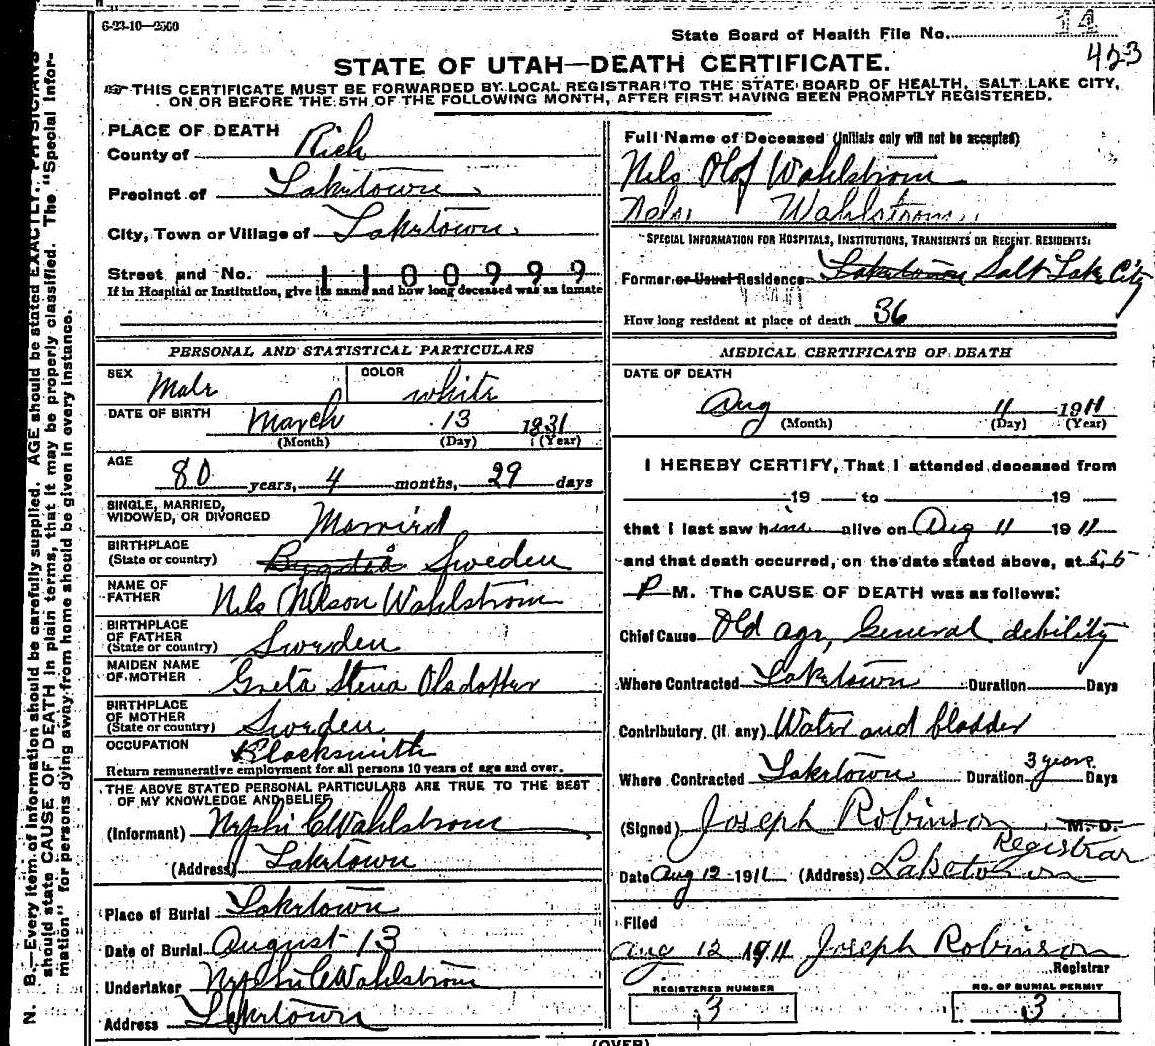 6-23-10—2500
State Board of Health File No. 14
423
STATE OF UTAH—DEATH CERTIFICATE.
THIS CERTIFICATE MUST BE FORWARDED BY LOCAL REGISTRAR TO THE STATE BOARD OF HEALTH, SALT LAKE CITY,
ON OR BEFORE THE 5TH OF THE FOLLOWING MONTH, AFTER FIRST HAVING BEEN PROMPTLY REGISTERED.
PLACE OF DEATH
County of Rich
Precinct of Laketown
City, Town or Village of Laketown
Street and No. 1100999
If in Hospital or Institution, give its name and how long deceased was an inmate
PERSONAL AND STATISTICAL PARTICULARS
SEX Male
COLOR white
DATE OF BIRTH March 13 1831
(Month) (Day) (Year)
AGE
80 years, 4 months, 29 days
SINGLE, MARRIED,
WIDOWED, OR DIVORCED Married
BIRTHPLACE
(State or country) Sweden
NAME OF
FATHER Nils Nilson Wahlstrom
BIRTHPLACE
OF FATHER
(State or country) Sweden
MAIDEN NAME
OF MOTHER Greta Stina Olsdotter
BIRTHPLACE
OF MOTHER
(State or country) Sweden
OCCUPATION Blacksmith
Return remunerative employment for all persons 10 years of age and over.
THE ABOVE STATED PERSONAL PARTICULARS ARE TRUE TO THE BEST
OF MY KNOWLEDGE AND BELIEF
(Informant) Nephi C Wahlstrom
(Address) Laketown
Place of Burial Laketown
Date of Burial August 13
Undertaker Nephi C Wahlstrom
Address Laketown
Full Name of Deceased (Initials only will not be accepted)
Nils Olof Wahlstrom
Nels Wahlstrom
SPECIAL INFORMATION FOR HOSPITALS, INSTITUTIONS, TRANSIENTS OR RECENT RESIDENTS:
Former or Usual Residence Laketown Salt Lake City
How long resident at place of death 36
MEDICAL CERTIFICATE OF DEATH
DATE OF DEATH
Aug 11 1911
(Month) (Day) (Year)
I HEREBY CERTIFY, That I attended deceased from
19 to 19
that I last saw him alive on Aug 11 1911
and that death occurred, on the date stated above, at
P M. The CAUSE OF DEATH was as follows:
Chief Cause Old age, General debility
Where Contracted Laketown Duration Days
Contributory (if any) Water and bladder
Where Contracted Laketown Duration 3 years Days
(Signed) Joseph Robinson M. D.
Registrar
Date Aug 12 1911 (Address) Laketown
Filed
Aug 12 1911 Joseph Robinson
Registrar
REGISTERED NUMBER
3
NO. OF BURIAL PERMIT
3
(OVER)
N. B.—Every item of information should be carefully supplied. AGE should be stated EXACTLY. PHYSICIANS
should state CAUSE OF DEATH in plain terms, that it may be properly classified. The "Special Infor-
mation" for persons dying away from home should be given in every instance.